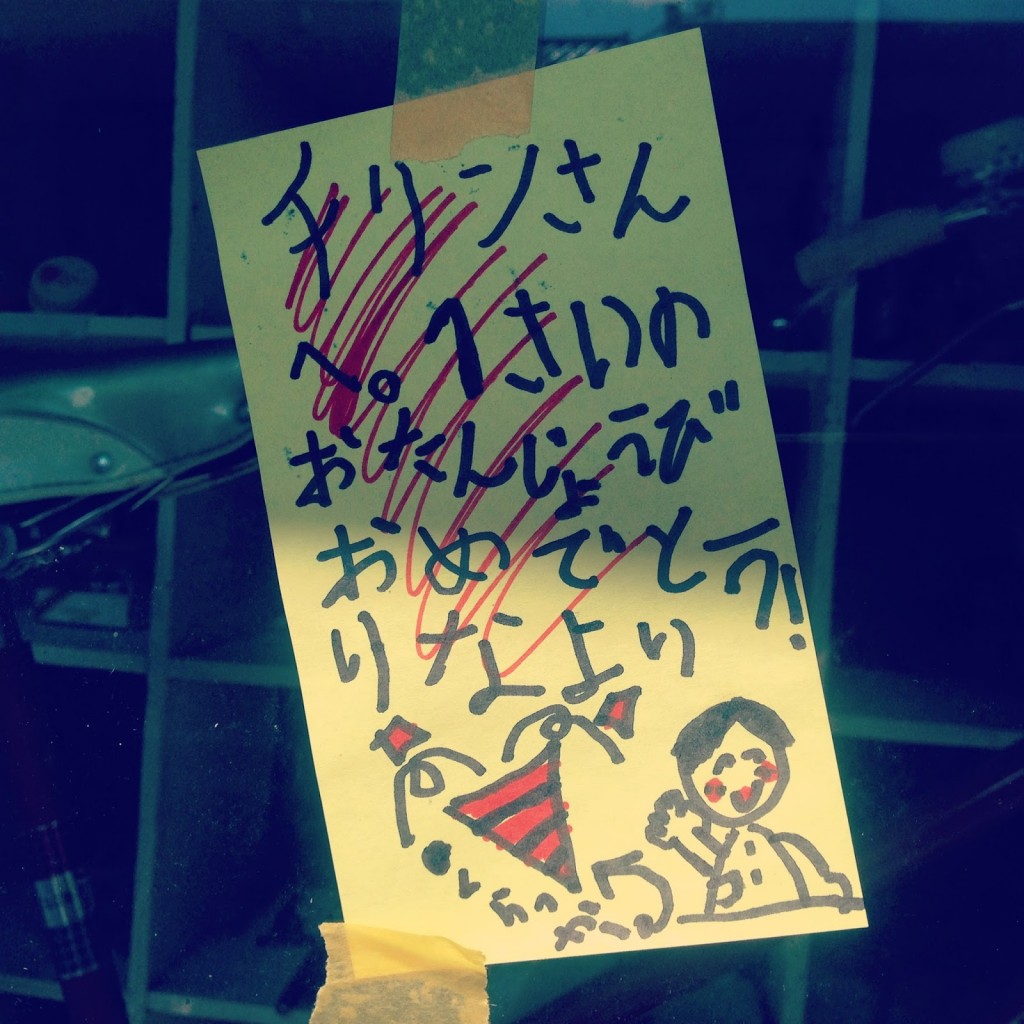 チリンさん
へ。1さいの
おたんじょうび
おめでとう!
りなより
くらっかー